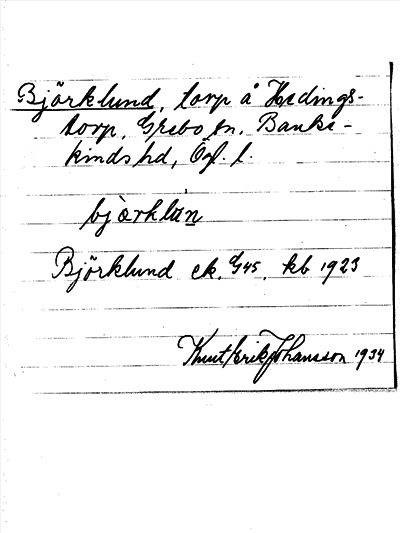 Björklund, torp å Hedings-
torp, Grebo sn. Banke-
kinds hd, Ögl. l.
bjærklun
Björklund ek. G45, kb 1923
Knut Erik Johansson 1934